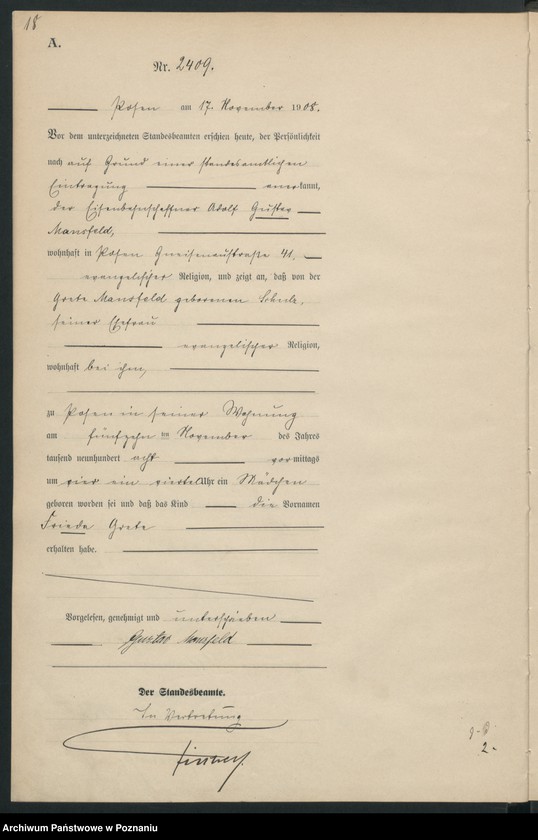 18
A.
Nr. 2409.
Posen am 17. November 1908.
Vor dem unterzeichneten Standesbeamten erschien heute, der Persönlichkeit
nach auf Grund einer standesamtlichen
Eintragung anerkannt,
der Eisenbahnschaffner Adolf Gustav
Mansfeld,
wohnhaft in Posen Gneisenaustraße 41,
evangelischer Religion, und zeigt an, daß von der
Grete Mansfeld geborenen Schulz,
seiner Ehefrau
evangelischer Religion,
wohnhaft bei ihm,
zu Posen in seiner Wohnung
am fünfzehn ten November des Jahres
tausend neunhundert acht vormittags
um vier ein viertel Uhr ein Mädchen
geboren worden sei und daß das Kind die Vornamen
Frieda Grete
erhalten habe.
Vorgelesen, genehmigt und unterschrieben
Gustav Mansfeld
Der Standesbeamte.
In Vertretung
2.
Archiwum Państwowe w Poznaniu